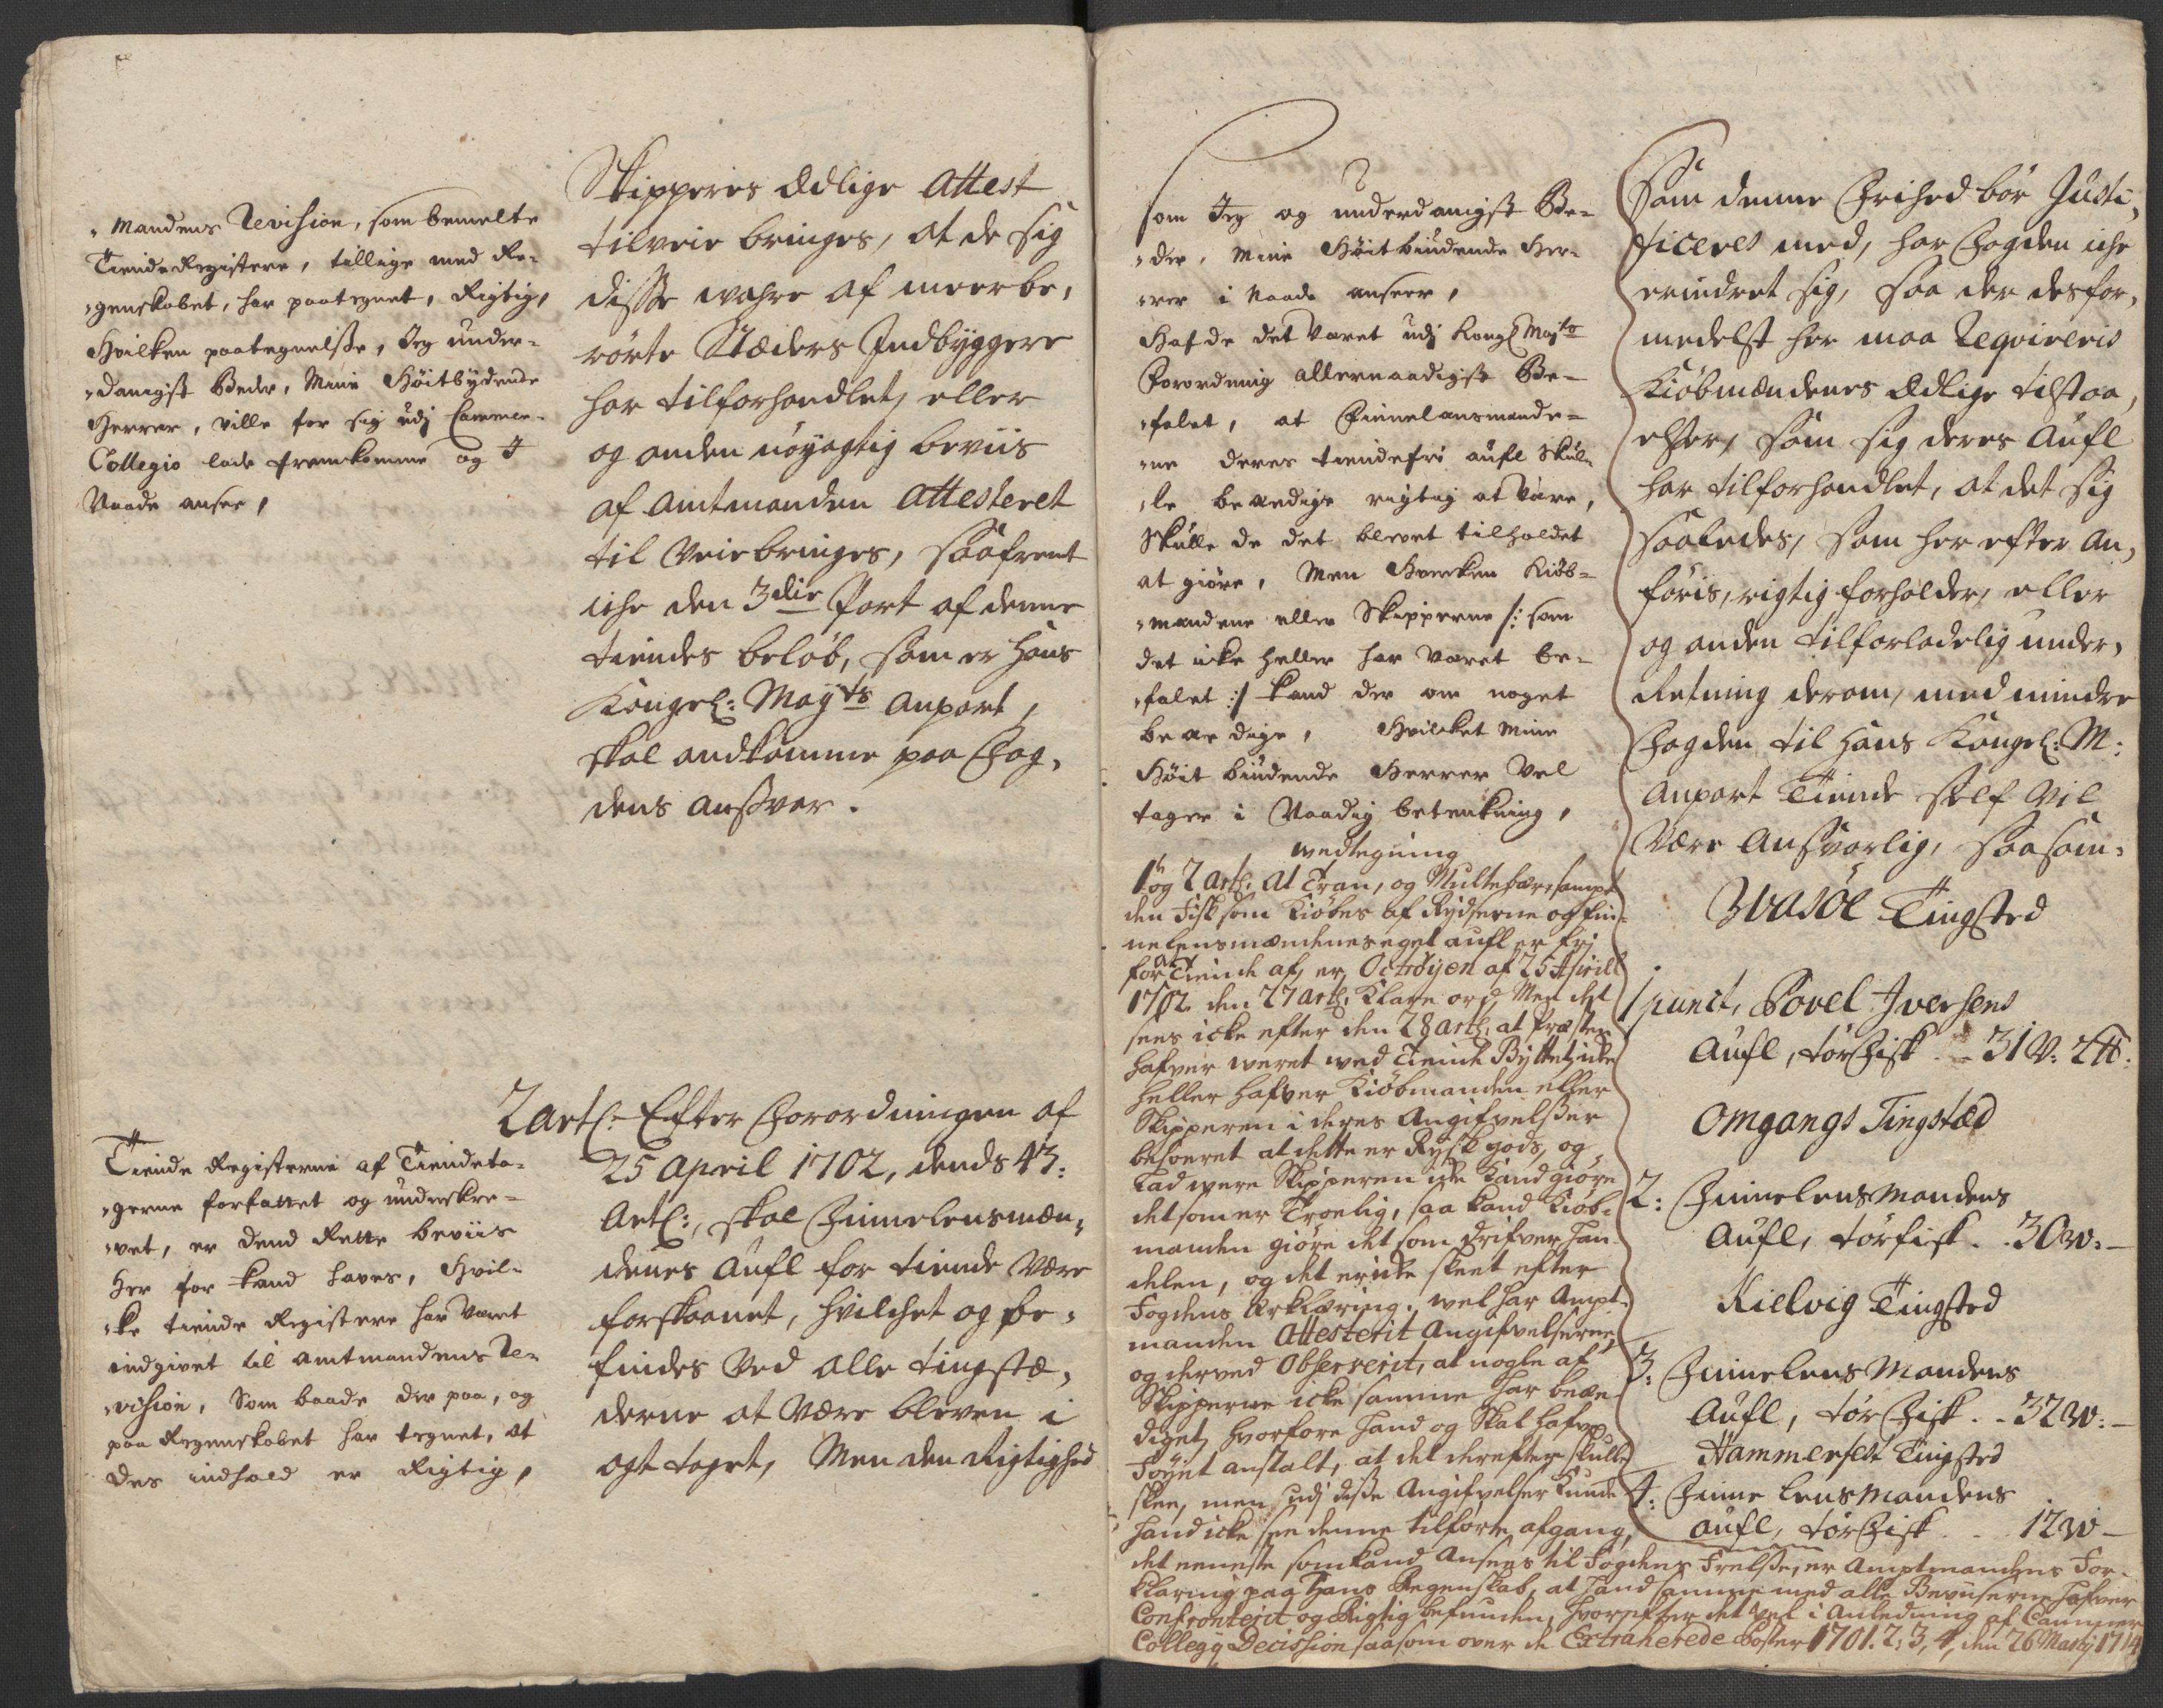 "Mandens Revision, som bemelte
Tiende Registere, tillige med Re-
"genskabet, har paategnet, Rigtig,
Hvilken paategnelsse, Jeg under-
"danigst Beder, Mine Høitbydende
Herrer, ville for sig udj Cammer-
Collegio lade fremkomme og I
Naade ansee,
Tiende Registerne af Tiendeta-
"gerne forfattet og underskre-
"vet, er dend Rette beviis
her for kand haves, Hvil-
"ke tiende Registere har Været
indgivet til Amtmandens Re-
"vision, Som baade der paa, og
paa Regenskabet har tegnet, at
des indhold er Rigtig,
Skipperes Edlige Attest
tilveie bringes, at de sig
disse wahre af meerbe,
rørte Stæders Indbyggere
har tilforhandlet, eller
og anden nøyagtig beviis
af Amtmanden Attesteret
til Veie bringes, saafremt
iche den 3die Part af denne
tiendes beløb, som er Hans
Kongel: Mayts Anpart,
skal andkomme paa Fog,
dens Ansvar.
2 Artl: Efter Forordningen af
25 April 1702, dends 43:
Artl:, skal Finnelensmæn,
denes Aufl for tiende Være
forskaanet, hvilchet og be,
findes Ved alle tingstæ,
derne at Være bleven i
agt taget, Men den Rigtighed
som Jeg og underdanigst Be-
"der, Mine Høitbiudende Her-
"rer i Naade anseer,
Hafde det Været udj Kongl Majts
Forordning allernaadigst Be-
"falet, at Finnelansmande-
"ne deres tiendefri aufl Skul-
"le beædige rigtig at Være,
Skulle de det blevet tilholdet
at giøre, Men Hvercken Kiøb-
"mændene eller Skipperne /: som
det icke heller har Været be-
"falet :/ kand der om noget
beædige, Hvilcket Mine
Høit biudende Herrer Vel
tager i Naadig betenkning,
wedtegning
1 og 2 artl. At Tran, og Multebær, sampt
den Fisk som Kiøbes af Rydserne og Fin-
nelensmændenes eget aufl er frj
for at Tiende af, er Octrøyen af 25 Aprill
1702. den 27 artl. Klare ord, Men det
sees icke efter den 28 artl. at Præsten
hafver weret wed Tiende Byttet, icke
heller hafver Kiøbmanden eller
Skipperen i deres Angifvelsser
besværet at dette er Rysk gods, og
Lad were Skipperen icke Kand giøre
det som er Troelig, saa kand Kiøb-
manden giøre det som drifver Han-
delen, og det er icke skeet efter
Fogdens Erklæring, wel har Ampt-
manden Attesterit Angifvelserne,
og derved Observerit, at nogle af
Skipperne icke samme har beæe-
diget, hvorfore hand og Skal hafve
Føyet anstalt, at det derefter skulle
skee, men udj disse Angifvelser Kunde
hand icke see denne tilførte afgang,
det eeneste som kand Ansees til Fogdens Frelsse, er Amptmandens For-
klaring paa Hans Regenskab, at hand samme med alle Beviiserne hafver
Confronterit og Rigtig befunden, hvorefter det vel i Anledning af Cammer
Collegij Decission saasom over de Extraherede Poster 1701. 2, 3, 4, den 26 Martij 1714
Som denne Frihed bør Justi,
ficeres med, har Fogden iche
erindret sig, saa der desfor,
medelst her maa Reqvireris
Kiøbmændenes Edlige tilstaa,
elsser, som sig deres Aufl
har tilforhandlet, at det sig
saaledes, som her efter An,
føris, rigtig forholder, eller
og anden tilforladelig under,
Retning derom, med mindre
Fogden til Hans Kongel: M:
Anpart Tiende self Vil
Være Ansvarlig, saasom:
Wasøe Tingsted
1 punct, Povel Iversens
Aufl, tør Fisk .. 31 V: 2 ℔:
Omgangs Tingstæd
2: Finnelens Mandens
Aufl, tørfisk .. 30 W: —
Kielvig Tingsted
3: Finnelens Mandens
Aufl, tør Fisk .. 32 W: —
Hammerfest Tingsted
4: Finne lens Mandens
Aufl, tør Fisk .. 12 W —